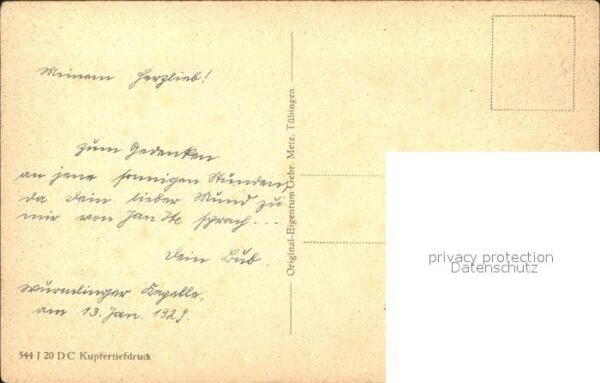 Meinem Herzlieb!
zum Gedenken
an jene sonnigen Stunden,
da Dein lieber Mund zu
mir von Jan sprach...
Dein Bub.
Wurmlinger Kapelle,
am 13. Jan. 1929.
544 J 20 D C Kupfertiefdruck
Original-Eigentum Gebr. Metz, Tübingen.
privacy protection
Datenschutz